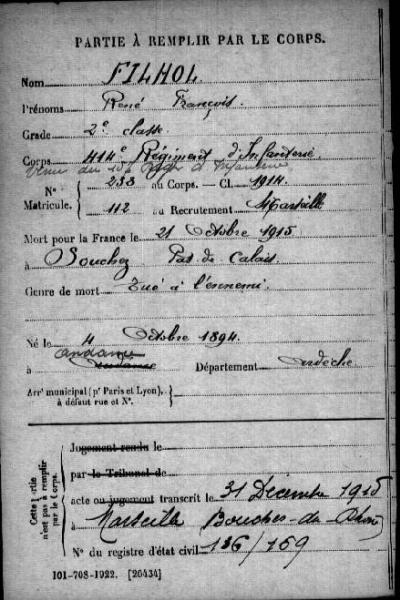 PARTIE À REMPLIR PAR LE CORPS.
Nom FILHOL
Prénoms René François
Grade 2e classe
Corps 414e Régiment d'Infanterie
Venu du d'Infanterie
N° 233 au Corps. — Cl. 1914
Matricule. 112 au Recrutement Marseille
Mort pour la France le 21 Octobre 1915
à Souchez Pas-de-Calais
Genre de mort Tué à l'ennemi.
Né le 4 Octobre 1894
andance
à Département Ardèche
Arrt municipal (pr Paris et Lyon),
à défaut rue et N°.
Cette partie n'est pas à remplir par le Corps.
Jugement rendu le
par le Tribunal de
acte ou jugement transcrit le 31 Décembre 1915
à Marseille Bouches-du-Rhône
N° du registre d'état civil 136/159
101-708-1922. [26434]